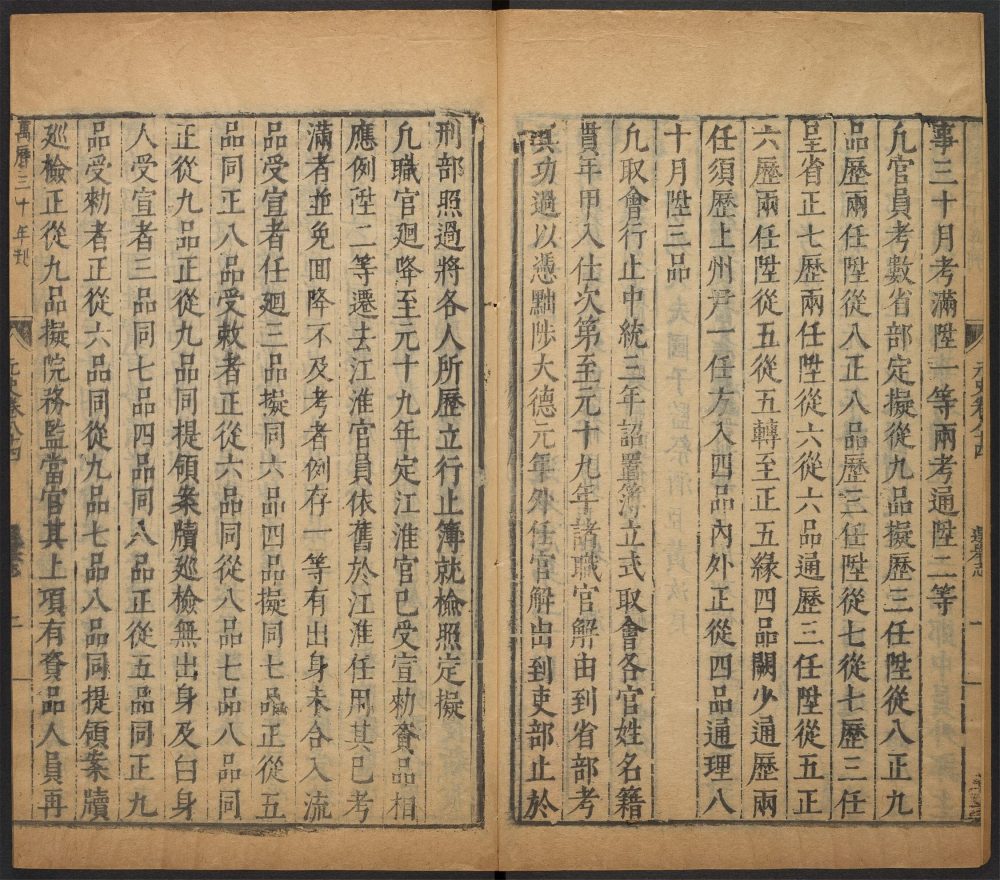 事三十月考滿陞一等兩考通陞二等
凢官員考數省部定擬從九品擬歷三任陞從八正九
品歷兩任陞從八正八品歷三任陞從七從七歷三任
呈省正七歷兩任陞從六從六品通歷三任陞從五正
六歷兩任陞從五從五轉至正五緣四品闕少通歷兩
任須歷上州尹一任方入四品內外正從四品通理八
十月陞三品
凢取會行止中統三年詔置簿立式取會各官姓名籍
貫年甲入仕次第至元十九年諸職官解由到省部考
其功過以憑黜陟大德元年外任官解由到吏部止於
刑部照過將各人所歷立行止簿就檢照定擬
凢職官迴降至元十九年定江淮官已受宣勑資品相
應例陞二等遷去江淮官員依舊於江淮任用其已考
滿者並免回降不及考者例存一等有出身未合入流
品受宣者任廻三品擬同六品四品擬同七品正從五
品同正八品受敕者正從六品同從八品七品八品同
正從九品正從九品同提領案牘廵檢無出身及白身
人受宣者三品同七品四品同八品正從五品同正九
品受勑者正從六品同從九品七品八品同提領案牘
廵檢正從九品擬院務監當官其上項有資品人員再
萬曆三十年刊
元史卷八十四